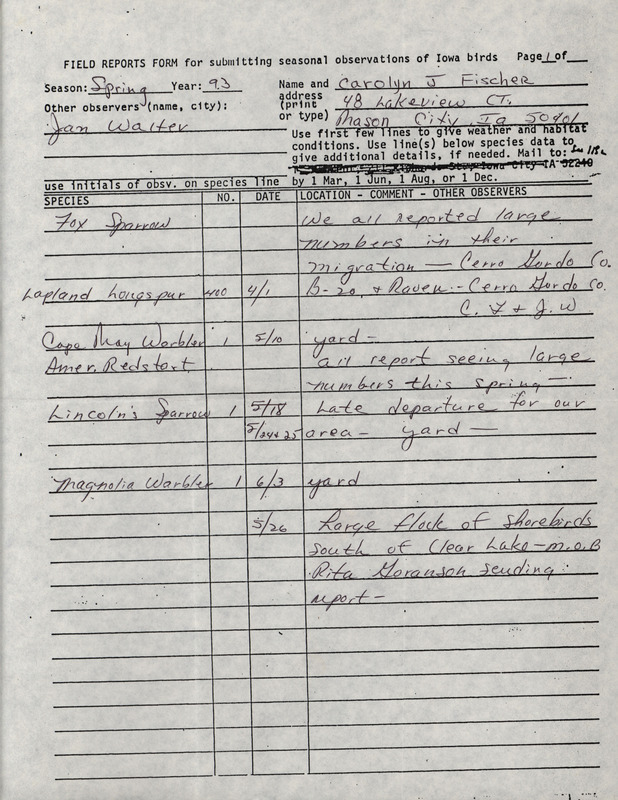 FIELD REPORTS FORM for submitting seasonal observations of Iowa birds Page 1 of
Season: Spring Year: 93 Name and Carolyn J Fischer
address 48 Lakeview CT.
Other observers (name, city): (print
or type) Mason City, Ia 50401
Jan Walter
Use first few lines to give weather and habitat
conditions. Use line(s) below species data to
give additional details, if needed. Mail to:
Iowa City IA 52240
use initials of obsv. on species line by 1 Mar, 1 Jun, 1 Aug, or 1 Dec.
SPECIES NO. DATE LOCATION - COMMENT - OTHER OBSERVERS
Fox Sparrow We all reported large
numbers in their
migration — Cerro Gordo Co.
Lapland Longspur 400 4/1 B-20 & Raven - Cerro Gordo Co.
C. F & J. W
Cape May Warbler 1 5/10 yard -
Amer. Redstart all report seeing large
numbers this spring —
Lincoln's Sparrow 1 5/18 Late departure for our
5/24 & 25 area - yard —
Magnolia Warbler 1 6/3 yard
5/26 Large flock of shorebirds
south of Clear Lake - m.o.B
Rita Goranson sending
report -